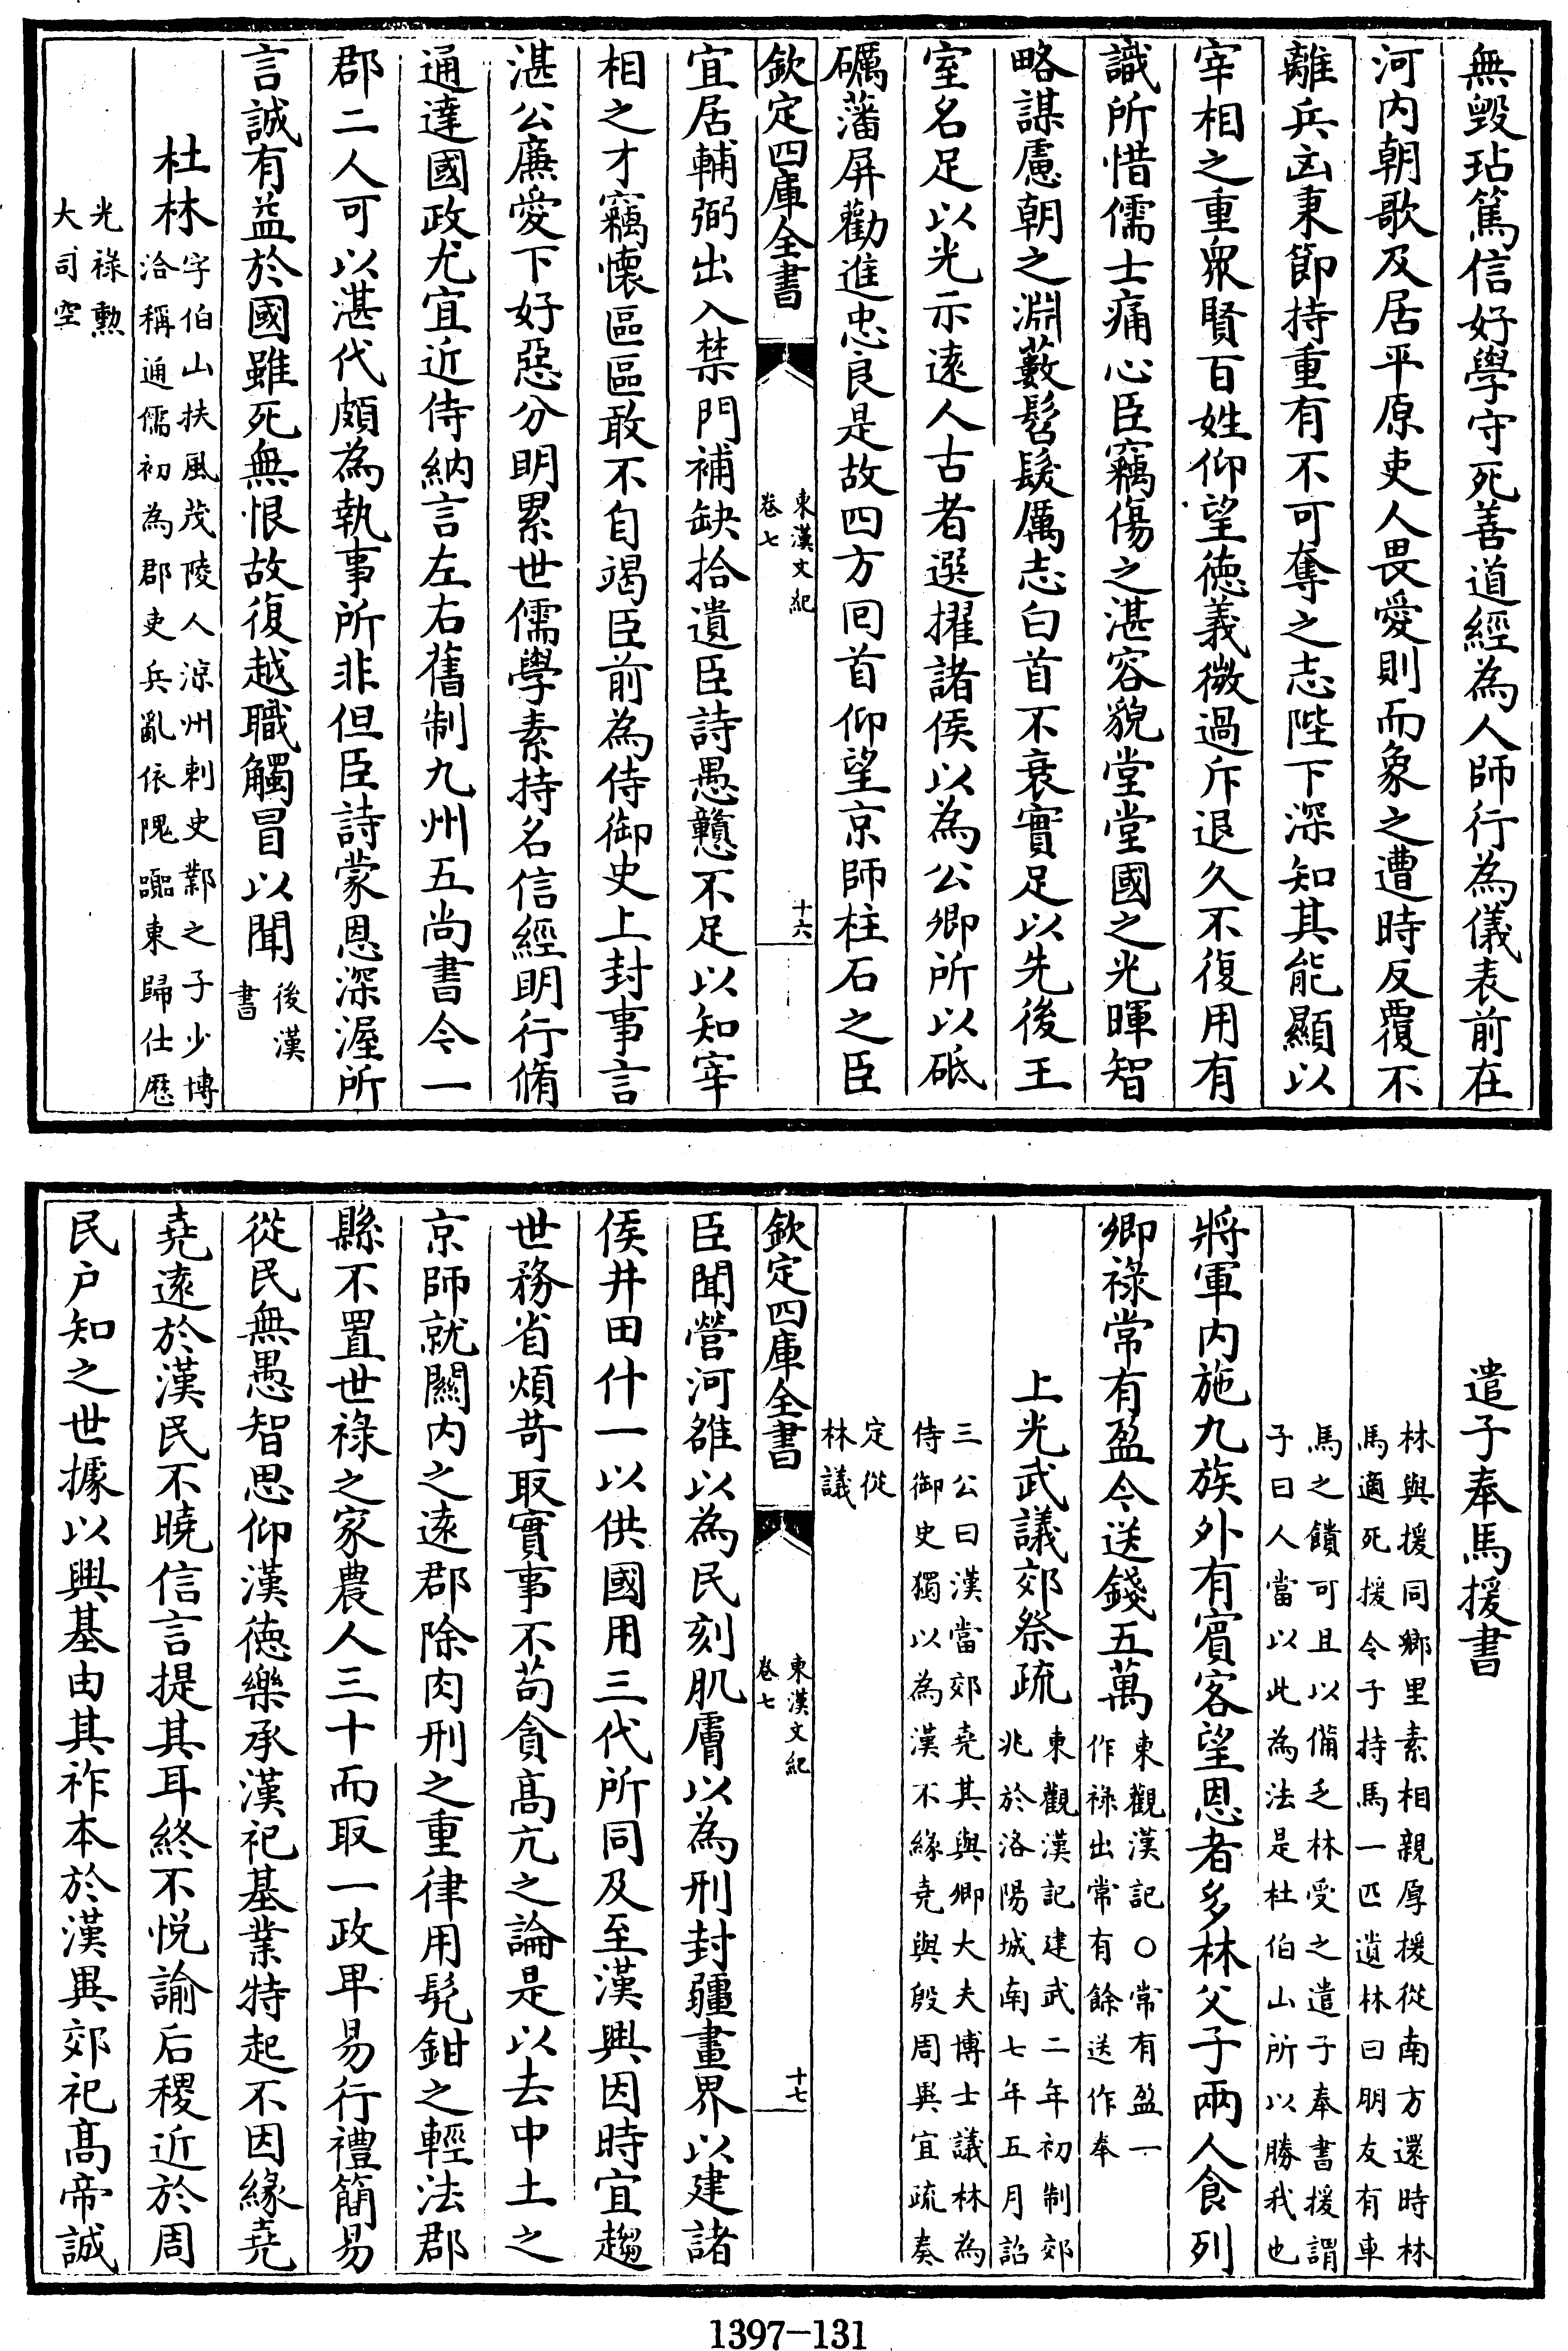 無毀玷篤信好學守死善道經為人師行為儀表前在
河内朝歌及居平原吏人畏愛則而象之遭時反覆不
離兵凶秉節持重有不可奪之志陛下深知其能顯以
宰相之重衆賢百姓仰望徳義微過斥退久不復用有
識所惜儒士痛心臣竊傷之湛容貌堂堂國之光暉智
略謀慮朝之淵藪髫髮厲志白首不衰實足以先後王
室名足以光示逺人古者選擢諸侯以為公卿所以砥
礪藩屏勸進忠良是故四方回首仰望京師柱石之臣
欽定四庫全書
東漢文紀
卷七
十六
宜居輔弼出入禁門補缺拾遺臣詩愚戇不足以知宰
相之才竊懷區區敢不自竭臣前為侍御史上封事言
湛公廉愛下好惡分明累世儒學素持名信經明行脩
通達國政尤宜近侍納言左右舊制九州五尚書令一
郡二人可以湛代頗為執事所非但臣詩蒙恩深渥所
言誠有益於國雖死無恨故復越職觸冒以聞
後漢
書
杜林
字伯山扶風茂陵人涼州刺史鄴之子少博
洽稱通儒初為郡吏兵亂依隗囂東歸仕歴
光祿勲
大司空
遣子奉馬援書
林與援同鄉里素相親厚援從南方還時林
馬適死援令子持馬一匹遺林曰朋友有車
馬之饋可且以備乏林受之遣子奉書援謂
子曰人當以此為法是杜伯山所以勝我也
將軍内施九族外有賓客望恩者多林父子兩人食列
卿祿常有盈今送錢五萬
東觀漢記○常有盈一
作祿出常有餘送作奉
上光武議郊祭疏
東觀漢記建武二年初制郊
兆於洛陽城南七年五月詔
三公曰漢當郊堯其與卿大夫博士議林為
侍御史獨以為漢不緣堯與殷周異宜疏奏
定從
林議
欽定四庫全書
東漢文紀
卷七
十七
臣聞營河雒以為民刻肌膚以為刑封疆畫界以建諸
侯井田什一以供國用三代所同及至漢興因時宜趨
世務省煩苛取實事不苟貪髙亢之論是以去中土之
京師就關内之逺郡除肉刑之重律用髡鉗之輕法郡
縣不置世祿之家農人三十而取一政卑易行禮簡易
從民無愚智思仰漢徳樂承漢祀基業特起不因緣堯
堯逺於漢民不曉信言提其耳終不悦諭后稷近於周
民户知之世據以興基由其祚本於漢異郊祀髙帝誠
1397-131